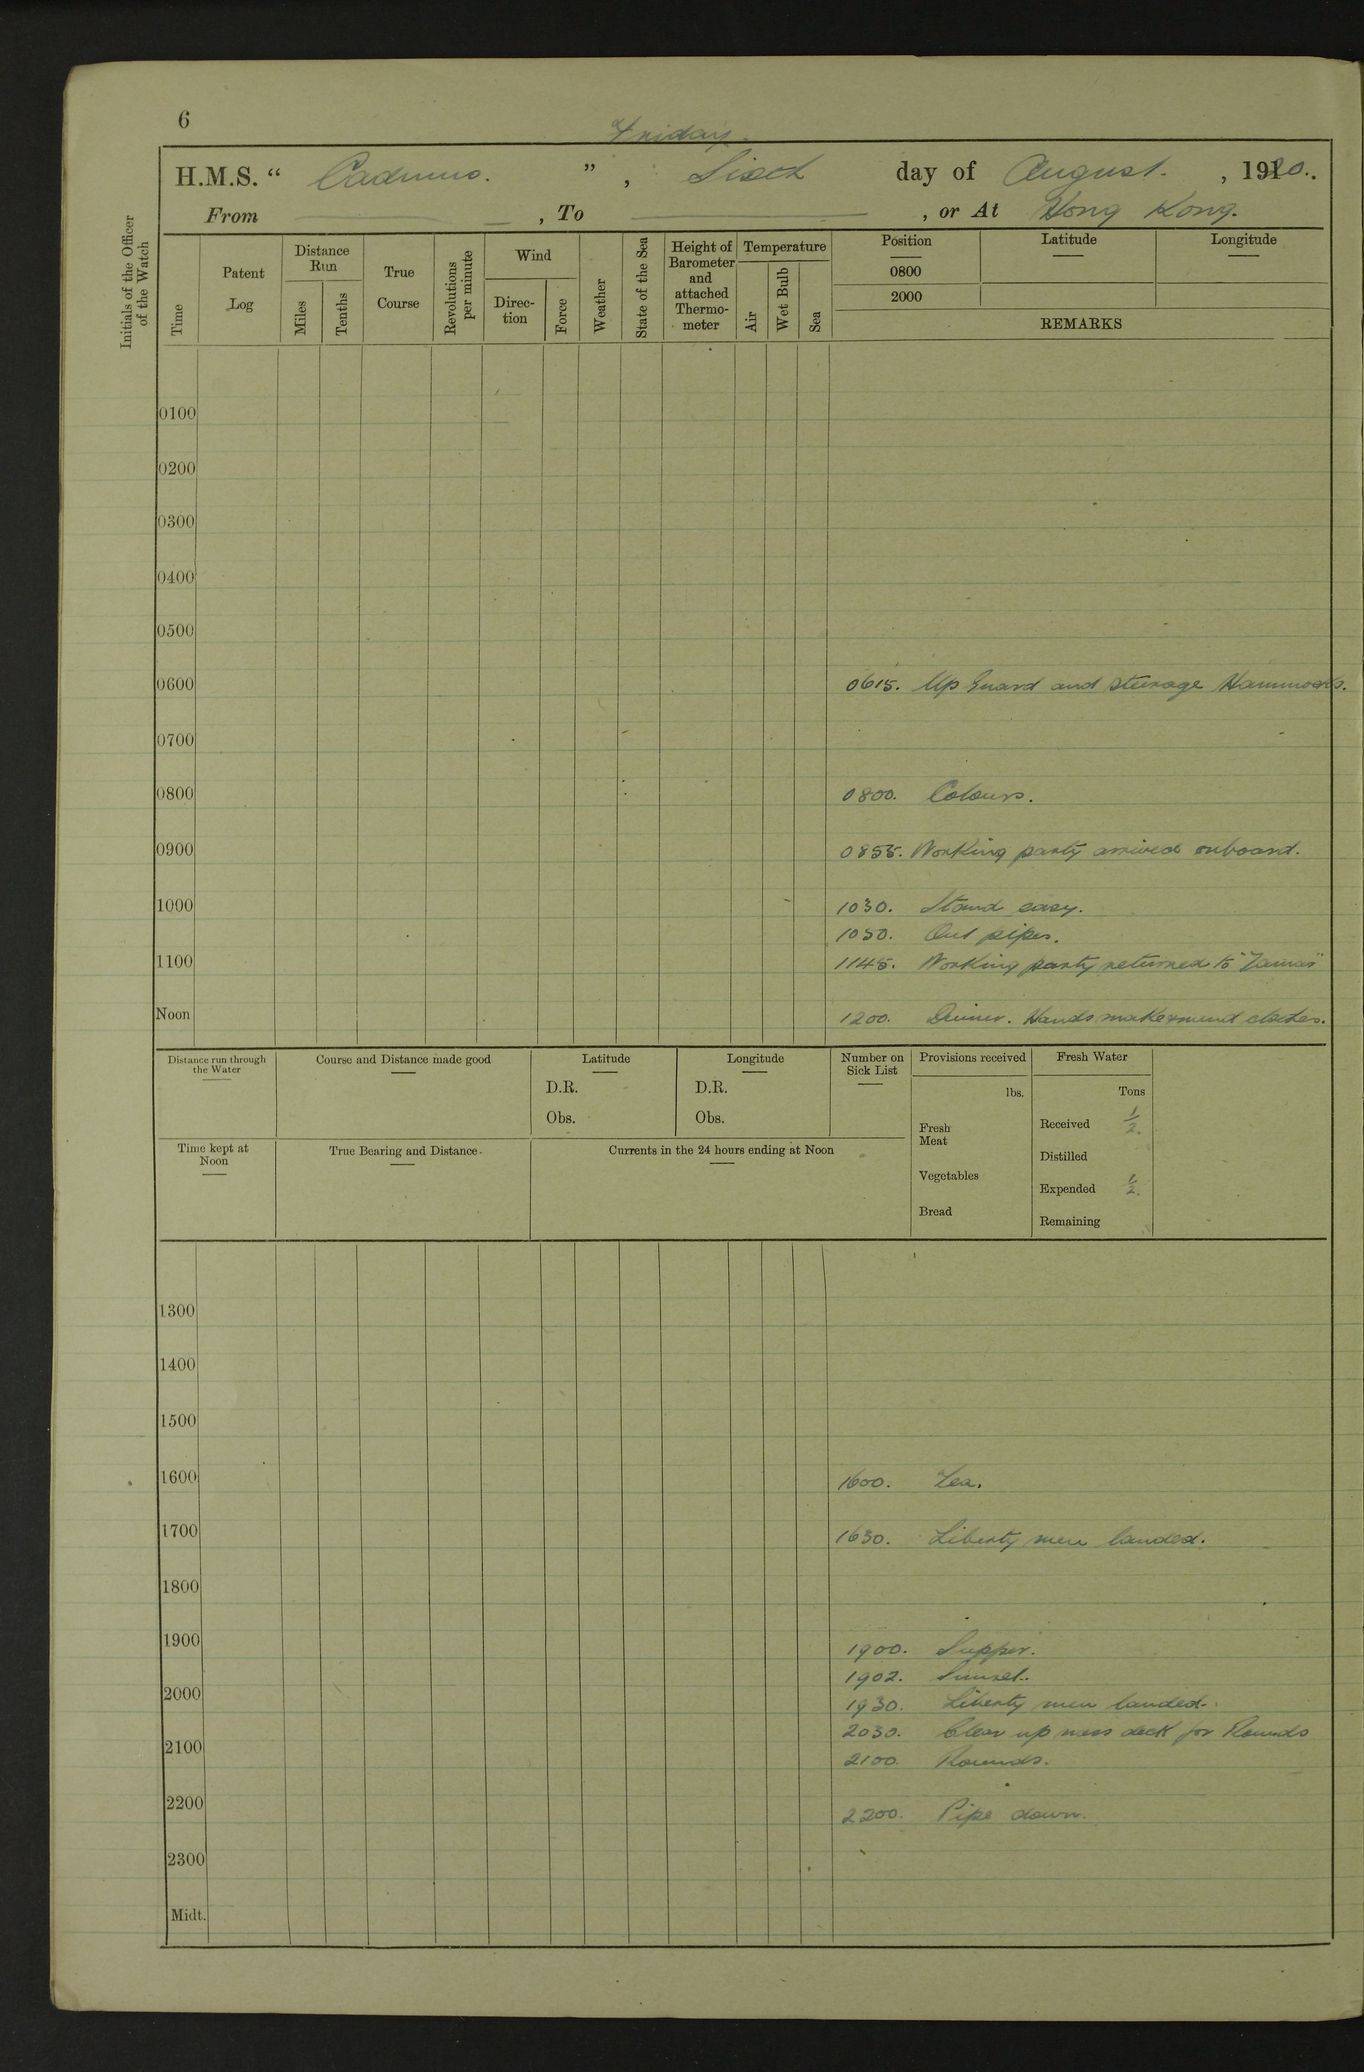 6
Friday.
H.M.S. “ Cadmus. ” , Sixth day of August. , 1920.
From , To , or At Hong Kong.
Initials of the Officer of the Watch
Time
Patent Log
Distance Run
Miles
Tenths
True Course
Revolutions per minute
Wind
Direc-tion
Force
Weather
State of the Sea
Height of Barometer and attached Thermo-meter
Temperature
Air
Wet Bulb
Sea
Position Latitude Longitude
0800
2000
REMARKS
0100
0200
0300
0400
0500
0600 0615. Up Guard and Steerage Hammocks.
0700
0800 0800. Colours.
0900 0855. Working party arrived onboard.
1000 1030. Stand easy.
1050. Out pipes.
1100 1145. Working party returned to "Tamar"
Noon 1200. Dinner. Hands make & mend clothes.
Distance run through the Water
Course and Distance made good
Latitude
D.R.
Obs.
Longitude
D.R.
Obs.
Number on Sick List
Provisions received
lbs.
Fresh Meat
Vegetables
Bread
Fresh Water
Tons
Received 1/2.
Distilled
Expended 1/2.
Remaining
Time kept at Noon
True Bearing and Distance
Currents in the 24 hours ending at Noon
1300
1400
1500
1600 1600. Tea.
1700 1630. Liberty men landed.
1800
1900 1900. Supper.
1902. Sunset.
2000 1930. Liberty men landed.
2030. Clear up mess deck for Rounds
2100 2100 Rounds.
2200 2200. Pipe down.
2300
Midt.